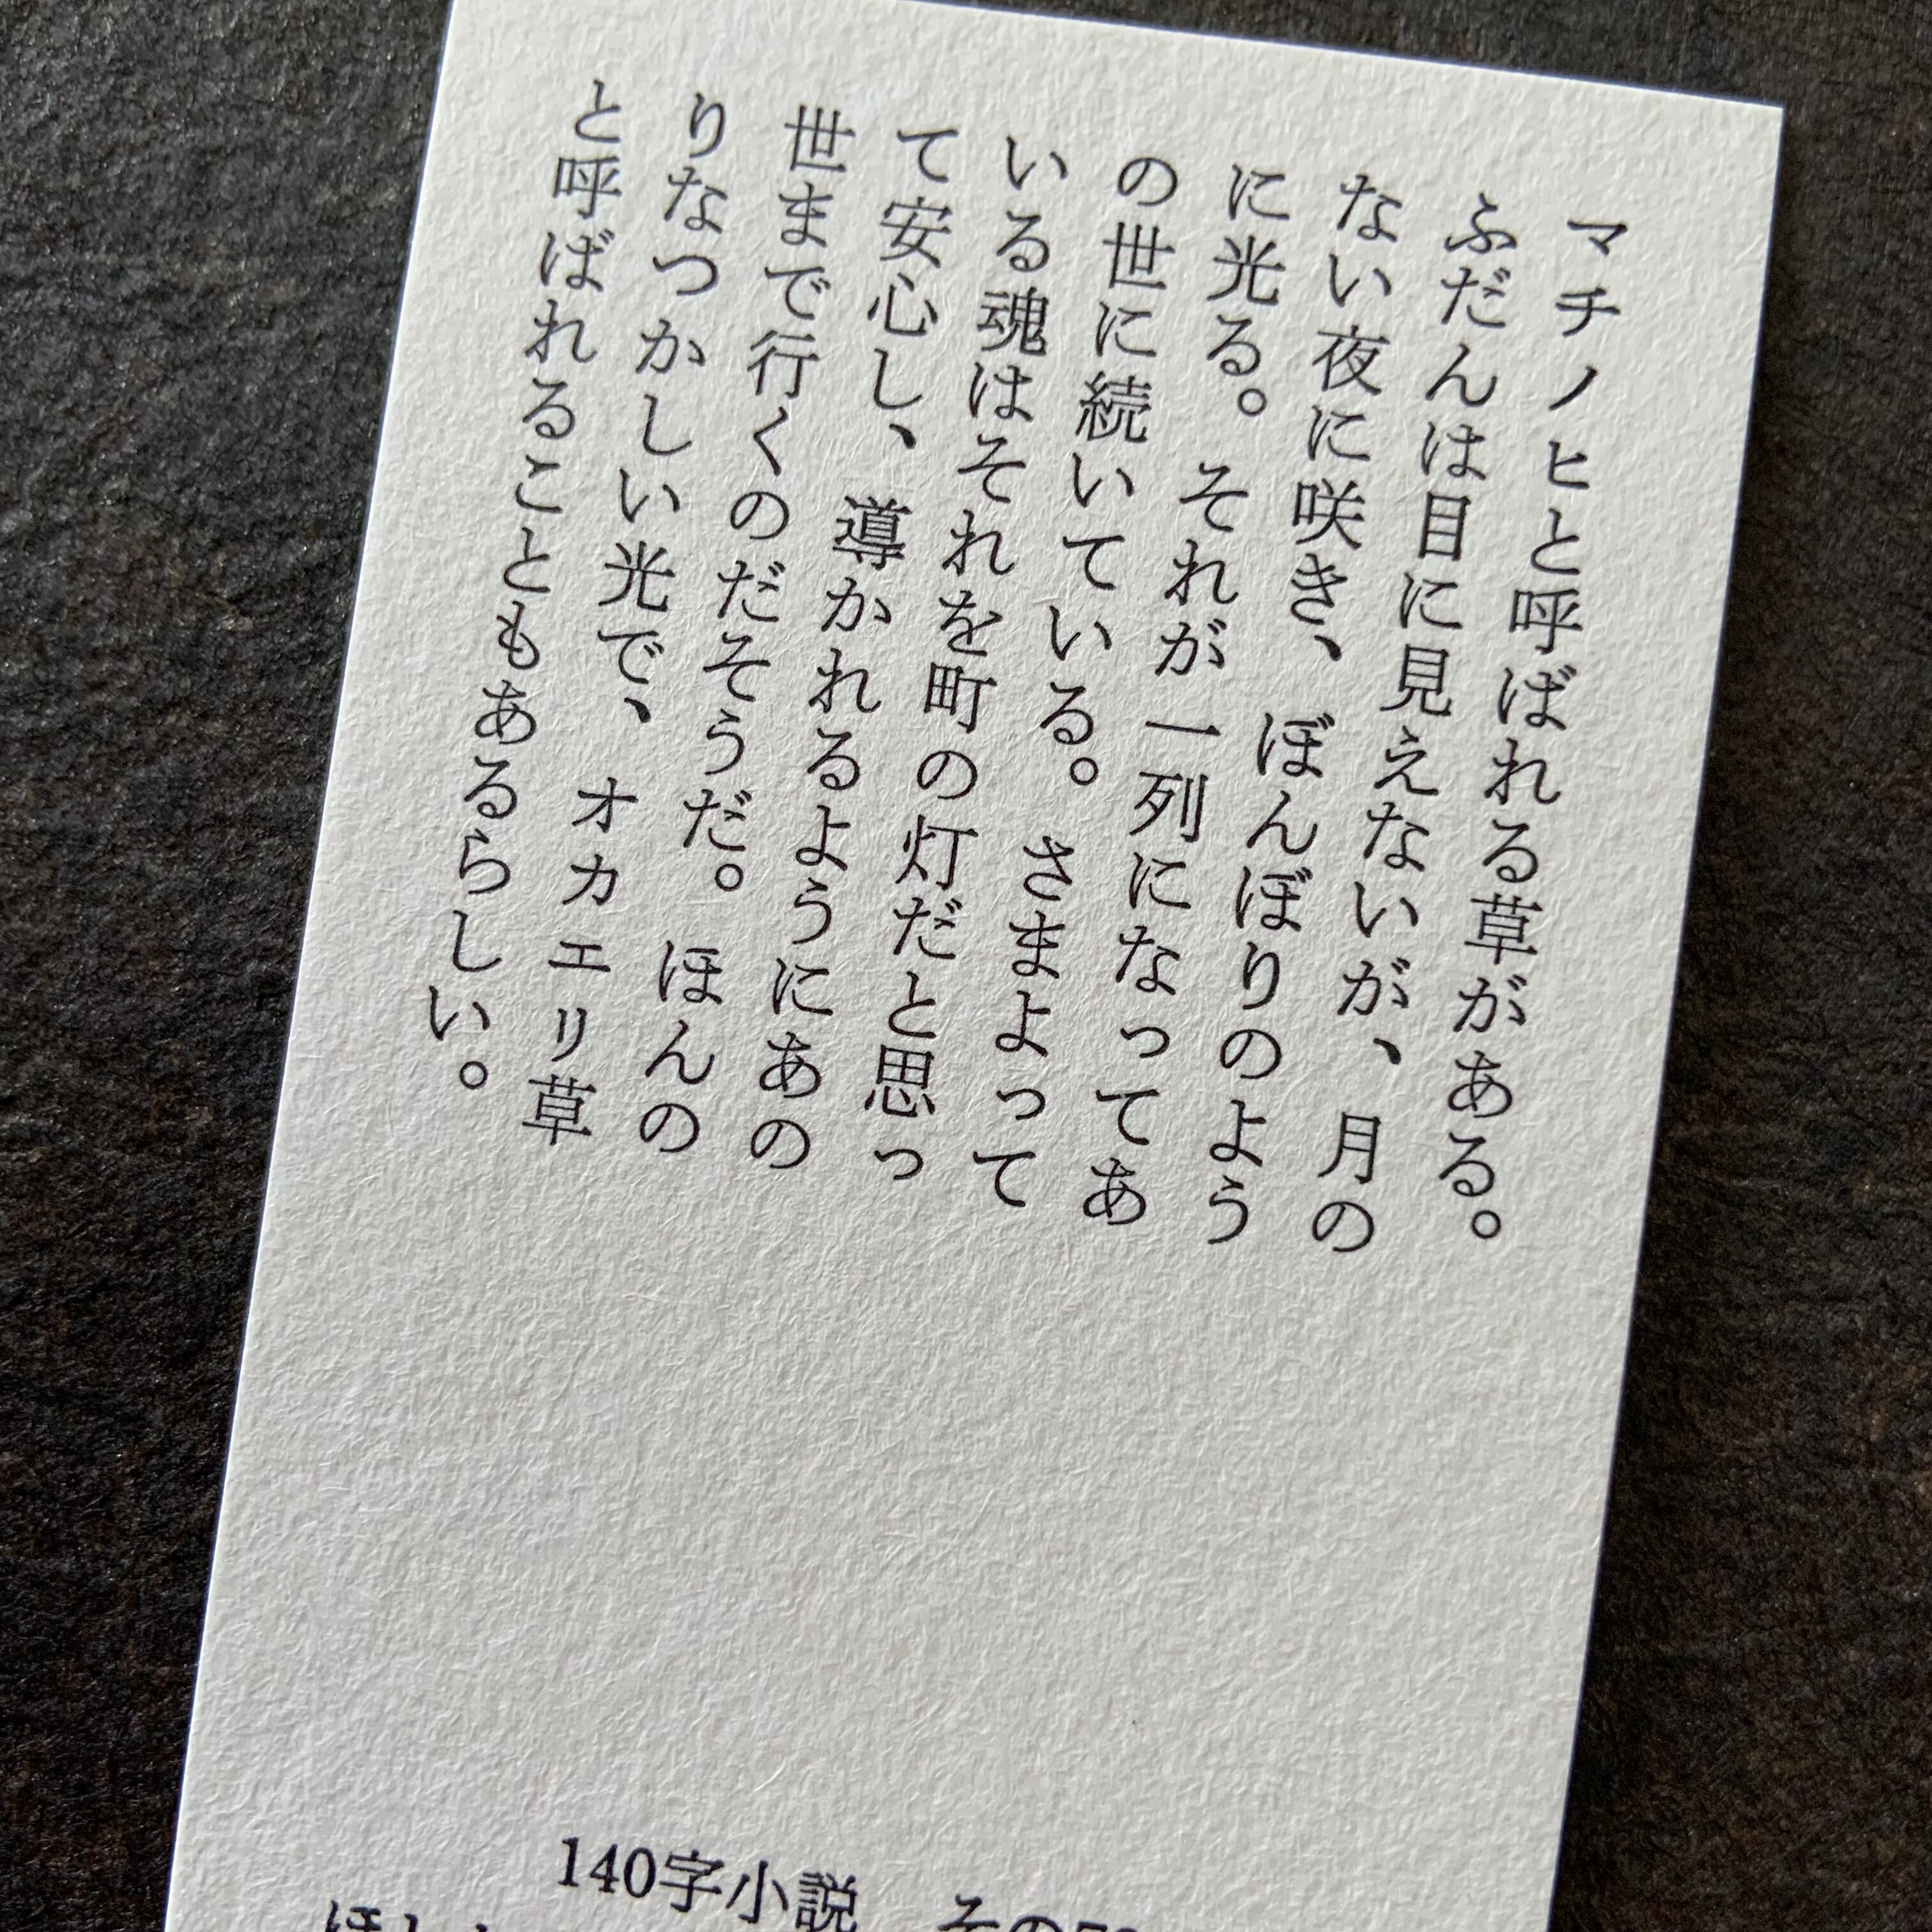 マチノヒと呼ばれる草がある。
ふだんは目に見えないが、月の
ない夜に咲き、ぼんぼりのよう
に光る。それが一列になってあ
の世に続いている。さまよって
いる魂はそれを町の灯だと思っ
て安心し、導かれるようにあの
世まで行くのだそうだ。ほんの
りなつかしい光で、オカエリ草
と呼ばれることもあるらしい。
140字小説 その